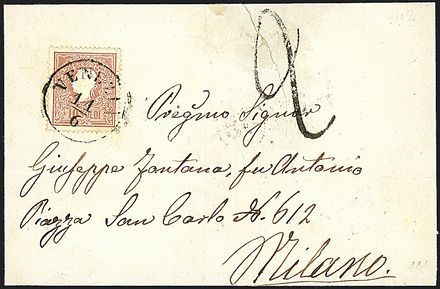 VENEZIA
11
6
Pregmo Signor
Giuseppe Fontana, fu Antonio
Piazza San Carlo N. 612
Milano.